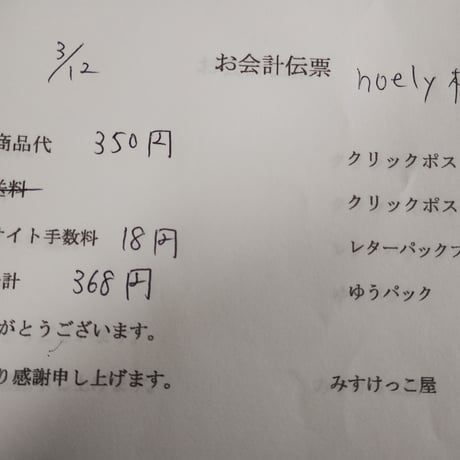 3/12 お会計伝票 noely 様
商品代 350円
クリックポス
送料
クリックポス
サイト手数料 18円
レターパックプ
合計 368円
ゆうパック
がとうございます。
り感謝申し上げます。
みすけっこ屋